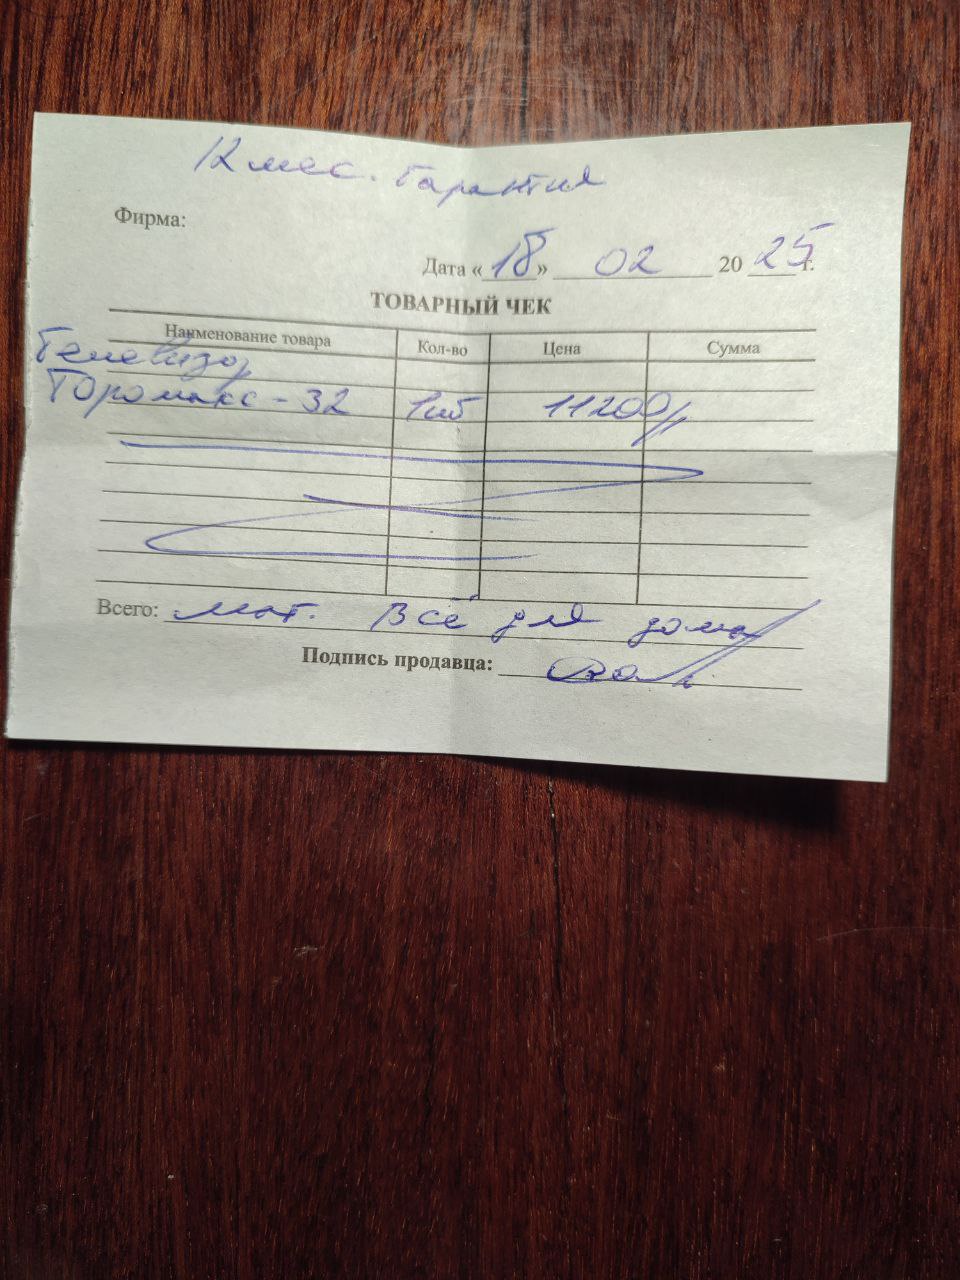 12 мес. Гарантия
Фирма:
Дата « 18 » 02 20 25 г.
ТОВАРНЫЙ ЧЕК
Наименование товара Кол-во Цена Сумма
Телевизор
Топмакс - 32 1шт 11200
Всего: маг. Всё для дома
Подпись продавца: